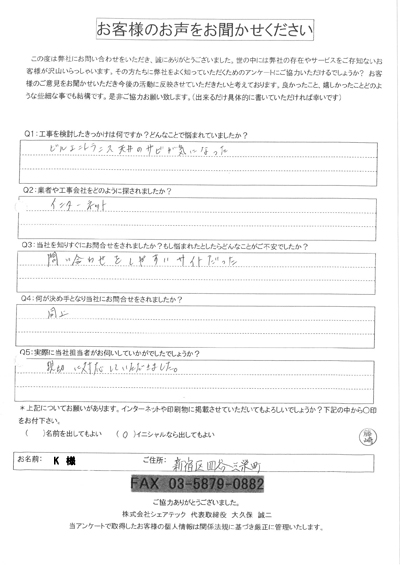 お客様のお声をお聞かせください
この度は弊社にお問い合わせをいただき、誠にありがとうございました。世の中には弊社の存在やサービスをご存知ないお
客様が沢山いらっしゃいます。その方たちに弊社をよく知っていただくためのアンケートにご協力いただけるでしょうか？ お客
様のご意見をお聞かせいただき今後の活動に反映させていただきたいと考えております。良かったこと、嬉しかったことどのよ
うな些細な事でも結構です。是非ご協力お願い致します。（出来るだけ具体的に書いていただければ幸いです）
Q1：工事を検討したきっかけは何ですか？どんなことで悩まれていましたか？
ビルエントランス天井のサビが気になった
Q2：業者や工事会社をどのように探されましたか？
インターネット
Q3：当社を知りすぐにお問合せをされましたか？もし悩まれたとしたらどんなことがご不安でしたか？
問い合わせをしやすいサイトだった
Q4：何が決め手となり当社にお問合せをされましたか？
同上
Q5：実際に当社担当者がお伺いしていかがでしたでしょうか？
親切に対応していただきました。
＊上記についてお願いがあります。インターネットや印刷物に掲載させていただいてもよろしいでしょうか？下記の中から〇印
をお付下さい。
（　　）名前を出してもよい　（ 〇 ）イニシャルなら出してもよい
お名前： K 様　ご住所： 新宿区四谷三栄町
FAX 03-5879-0882
ご協力ありがとうございました。
株式会社シェアテック 代表取締役 大久保 誠二
当アンケートで取得したお客様の個人情報は関係法規に基づき厳正に管理いたします。